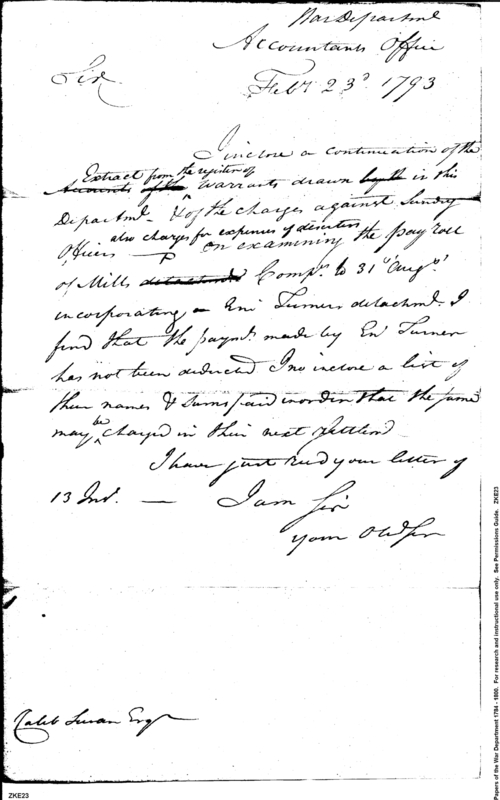 War Departmt
Accountants Office
Sir Febr 23d 1793
I inclose a continuation of the
Extract from the register of
Accounts of the warrants drawn by the in this
Departmt. & of the charges against Sundry
also charges for expenses of deserters
Officers — on examining the pay roll
of Mills detachmt Compy to 31st Augt
incorporating Ens Turners detachmt. I
find that the paymts made by En Turner
has not been deducted I now inclose a list of
their names & sums paid in order that the same
may be charged in their next settlemt
I have just recd your letter of
13 Inst. — I am Sir
your Obd Ser
Caleb Swan Esqr
ZKE23
Papers of the War Department 1784 - 1800. For research and instructional use only. See Permissions Guide. ZKE23